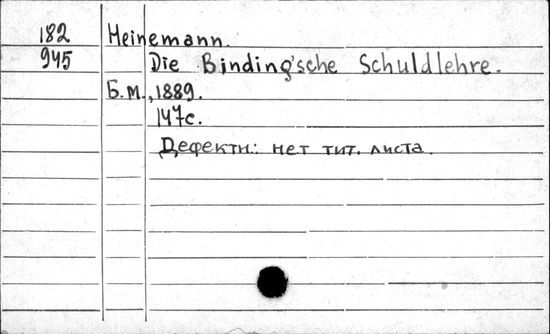 182 Heinemann.
945 Die Binding'sche Schuldlehre.
Б.м.,1889.
147с.
Дефектн.: нет тит. листа.